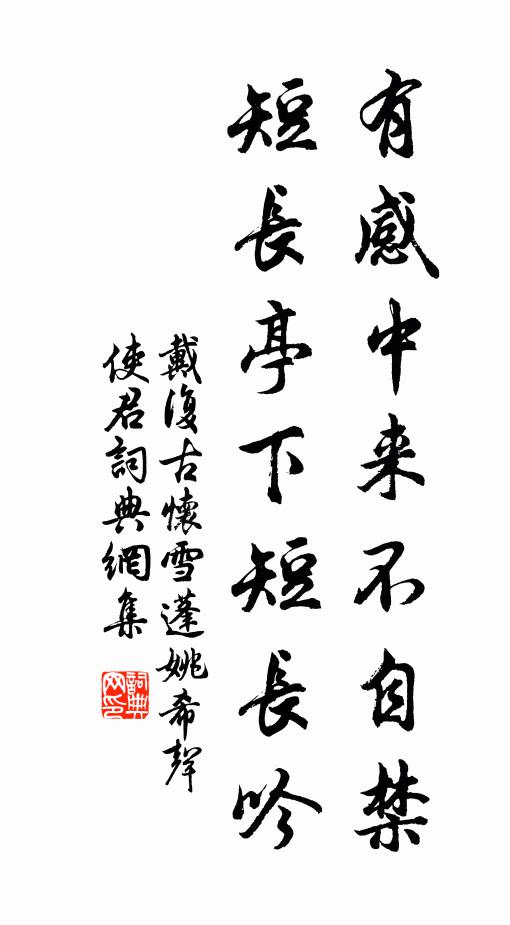 有感中来不自禁
短長亭下短長吟
戴復古懷雪蓬姚希聲
使君詞典網集
詞典
网印